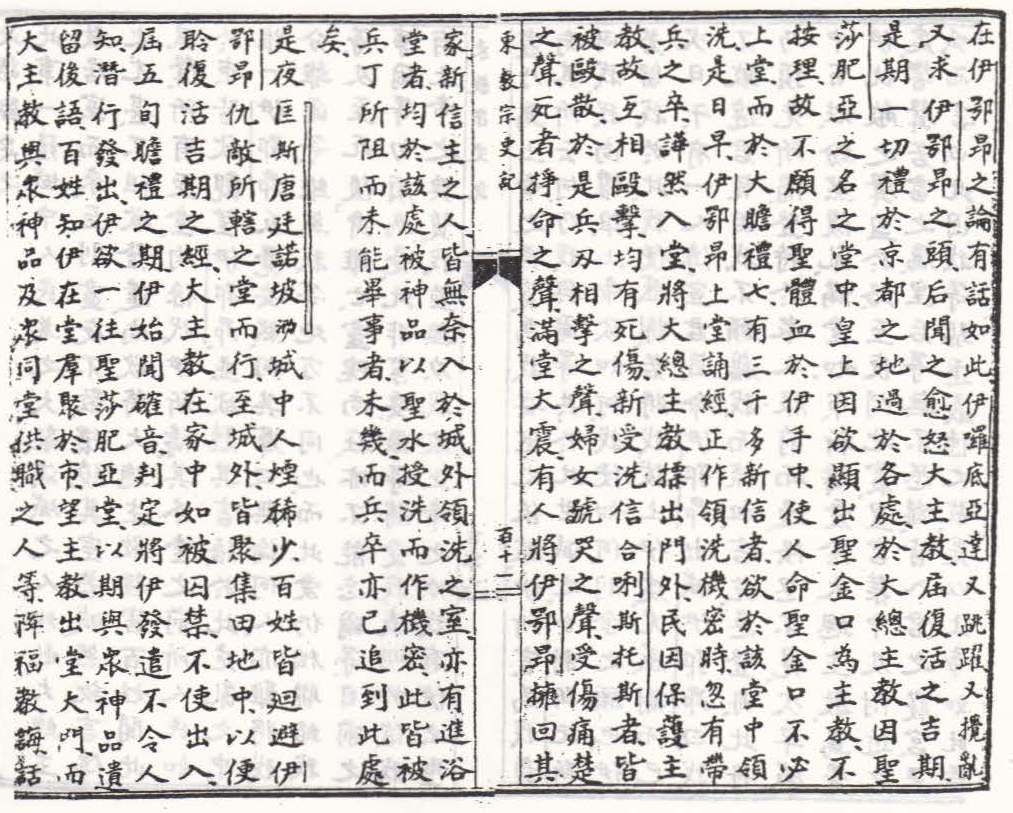 在伊鄂昂之論有話如此伊羅底亞達又跳躍又攪亂
又求伊鄂昂之頭后聞之愈怒大主教屆復活之吉期
是期一切禮於京都之地過於各處於大總主教因聖
莎肥亞之名之堂中皇上因欲顯出聖金口為主教不
按理故不願得聖體血於伊手中使人命聖金口不必
上堂而於大瞻禮七有三千多新信者欲於該堂中領
洗是日早伊鄂昂上堂誦經正作領洗機密時忽有帶
兵之卒譁然入堂將大總主教揉出門外民因保護主
教故互相毆擊均有死傷新受洗信合唎斯托斯者皆
被毆散於是兵刃相擊之聲婦女號哭之聲受傷痛楚
之聲死者掙命之聲滿堂大震有人將伊鄂昂擁回其
東教宗史記
百十二
家新信主之人皆無奈入於城外領洗之室亦有進浴
堂者均於該處被神品以聖水授洗而作機密此皆被
兵丁所阻而未能畢事者未幾而兵卒亦已追到此處
矣
是夜匡斯唐廷諾坡泐城中人煙稀少百姓皆迴避伊
鄂昂仇敵所轄之堂而行至城外皆聚集田地中以便
聆復活吉期之經大主教在家中如被囚禁不使出入
屆五旬瞻禮之期伊始聞確音判定將伊發遣不令人
知潛行發出伊欲一往聖莎肥亞堂以期與眾神品遺
留後語百姓知伊在堂羣聚於市望主教出堂大門而
大主教與眾神品及眾同堂供職之人等降福教誨話